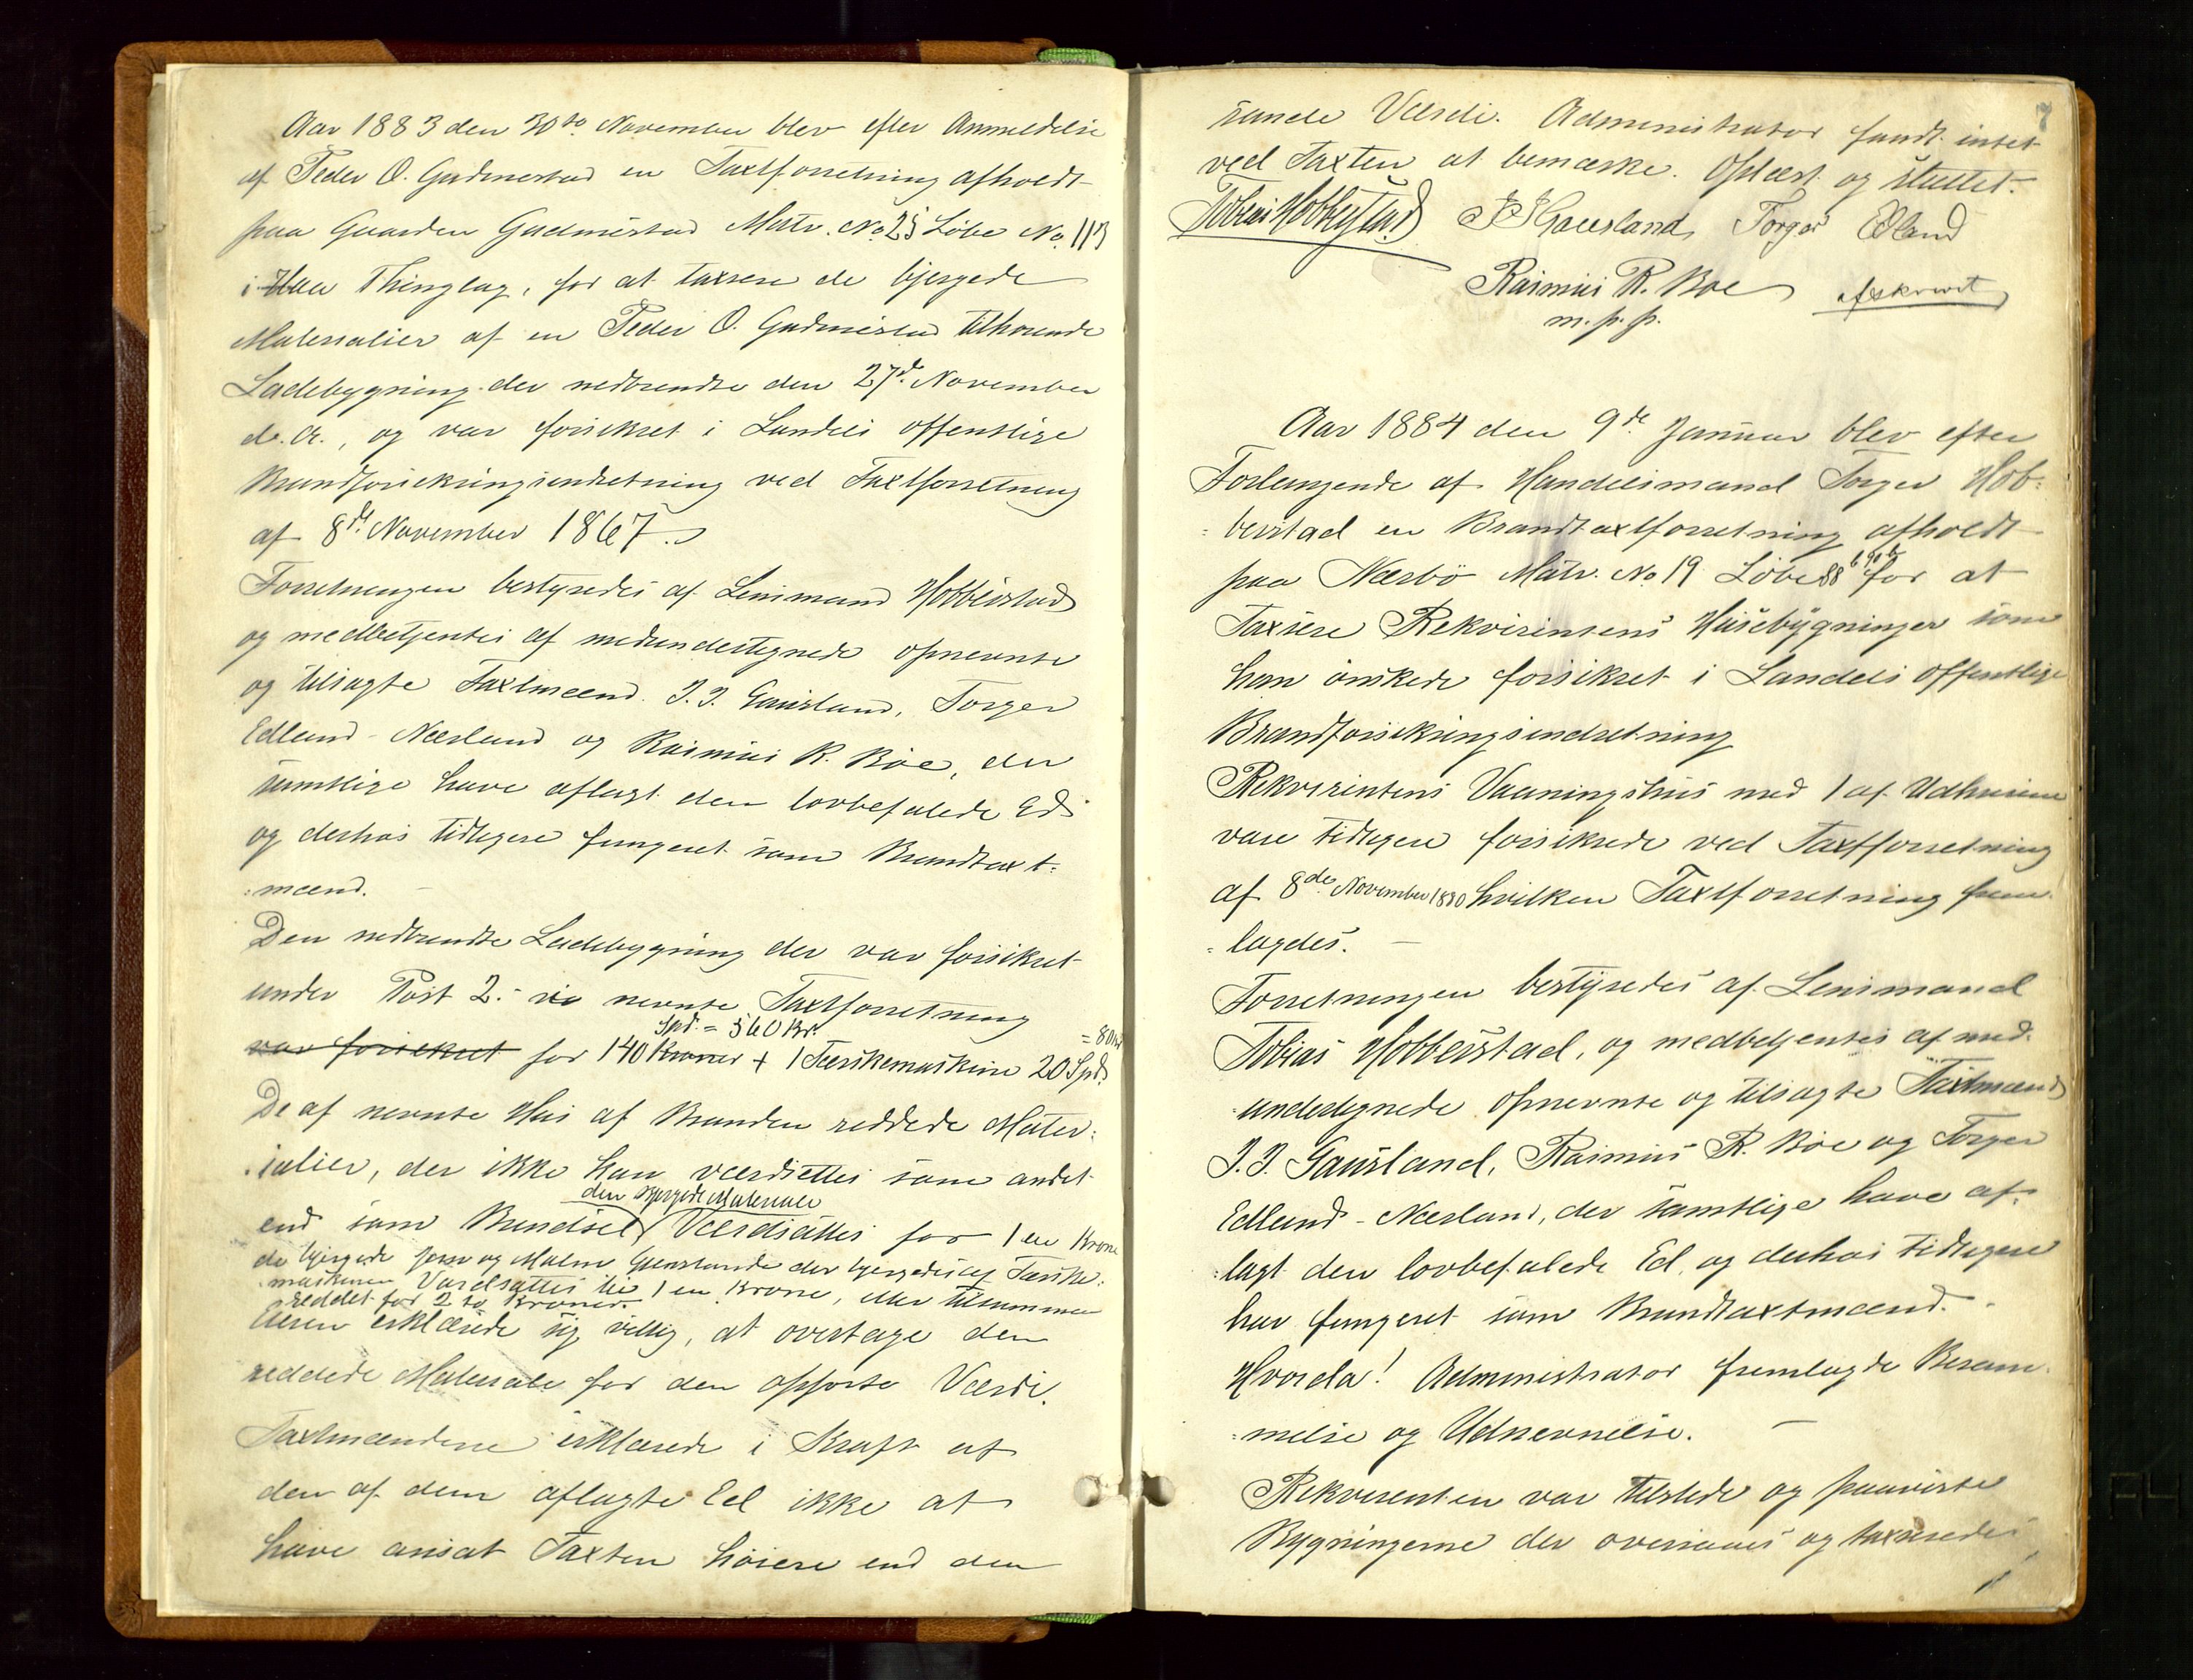 Aar 1883 den 30te November blev efter Anmeldelse
af Peder O. Gudmestad en Taxtforretning afholdt
paa Gaarden Gudmestad Matr. No. 25 Löbe No. 113
i Haa Thinglag, for at taxsere de bjergede
Materialier af en Peder O. Gudmestad tilhørende
Ladebygning der nedbrendte den 27de November
d. A., og var forsikret i Landets offentlige
Brandforsikringsindretning ved Taxtforretning
af 8de November 1867.
Forretningen bestyredes af Lensmand Hobberstad
og medbetjentes af medundertegnede opnevnte
og tilsagte Taxtmænd J. J. Gausland, Torger
Edland-Nærland og Rasmus R. Böe, der
samtlige have aflagt den lovbefalede Ed
og derhos tidligere fungeret som Brandtaxt-
mænd.
Den nedbrendte Ladebygning der var forsikret
under Post 2. nevnte Taxtforretning
Spd. = 560 Kr. = 80 Kr
var forsikret for 140 Kroner + 1 Tærskemaskine 20 Spd.
De af nevnte Hus af Branden reddede Mater-
ialier, der ikke kan værdsettes som andet
den bjergede Materiale
end som Brendsel Værdsattes for 1 en Krone
de bjergede Jern og Malm Gjenstande der bjergedes af Tærske-
maskinen Værdsattes til 1 en Krone, eller tilsammen
reddet for 2 to Kroner.
Eieren erklærede sig villig, at overtage den
reddede Materiale for den opførte Værdi.
Taxtmændene erklærede i Kraft af
den af dem aflagte Ed ikke at
have ansat Taxten höiere end den
7
sande Værdi. Administrator fandt intet
ved Taxten at bemærke. Oplæst og sluttet.
Tobias Hobberstad J J Gausland Torger Edland
Rasmus R. Boe afskrevet
m. p. p.
Aar 1884 den 9de Januar blev efter
Forlangende af Handelsmand Torger Hob-
berstad en Brandtaxtforretning afholdt
paa Nærbö Matr. No 19 Löbe 88 for at
Taxsere Rekvirentens Husebygninger som
han ønskede forsikret i Landets offentlige
Brandforsikringsindretning
Rekvirentens Vaaningshus med 1 af Udhusene
vare tidligere forsikrede ved Taxtforretning
af 8de November 1880 hvilken Taxtforretning frem-
lagdes.
Forretningen bestyredes af Lensmand
Tobias Hobberstad, og medbetjentes af med-
undertegnede opnevnte og tilsagte Taxtmænd
J. J. Gausland, Rasmus R. Böe og Torger
Edland-Nærland, der samtlige have af-
lagt den lovbefalede Ed, og derhos tidligere
har fungeret som Brandtaxtmænd.
Hvorda! Administrator fremlagde Beram-
melse og Udnevnelse.
Rekvirenten var tilstede og paaviste
Bygningerne der oversaaes og taxseredes